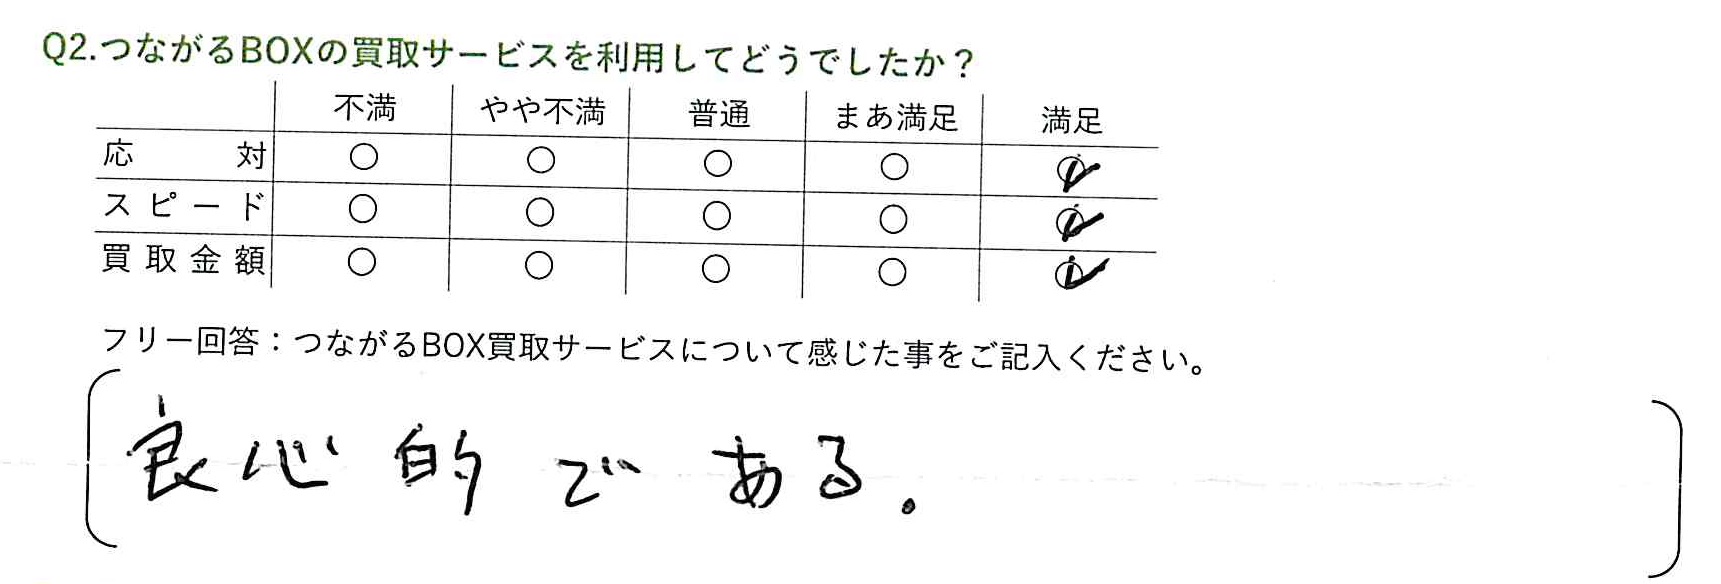 Q2.つながるBOXの買取サービスを利用してどうでしたか？
不満 やや不満 普通 まあ満足 満足
応対 ○ ○ ○ ○ ○✓
スピード ○ ○ ○ ○ ○✓
買取金額 ○ ○ ○ ○ ○✓
フリー回答：つながるBOX買取サービスについて感じた事をご記入ください。
良心的である。